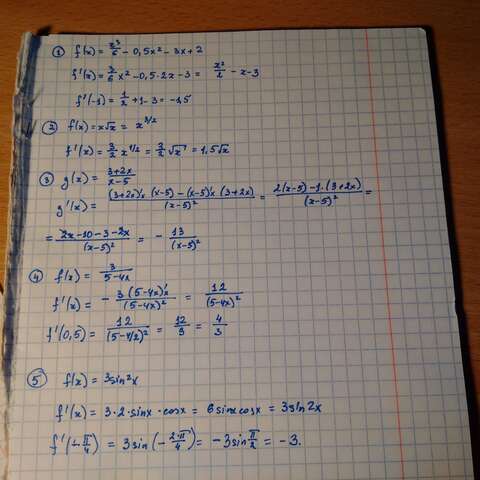 ① f(x) = x³/6 - 0,5x² - 3x + 2
f'(x) = 3/6 x² - 0,5·2x - 3 = x²/2 - x - 3
f'(-1) = 1/2 + 1 - 3 = -1,5
② f(x) = x√x = x^{3/2}
f'(x) = 3/2 x^{1/2} = 3/2 √x = 1,5√x
③ g(x) = (3+2x)/(x-5)
g'(x) = ((3+2x)'x (x-5) - (x-5)'x (3+2x))/(x-5)² = (2(x-5) - 1·(3+2x))/(x-5)² =
= (2x-10-3-2x)/(x-5)² = - 13/(x-5)²
④ f(x) = 3/(5-4x)
f'(x) = - 3(5-4x)'x/(5-4x)² = 12/(5-4x)²
f'(0,5) = 12/(5-4/2)² = 12/9 = 4/3
⑤ f(x) = 3sin²x
f'(x) = 3·2·sinx·cosx = 6sinxcosx = 3sin2x
f'(-π/4) = 3sin(-2·π/4) = -3sin π/2 = -3.